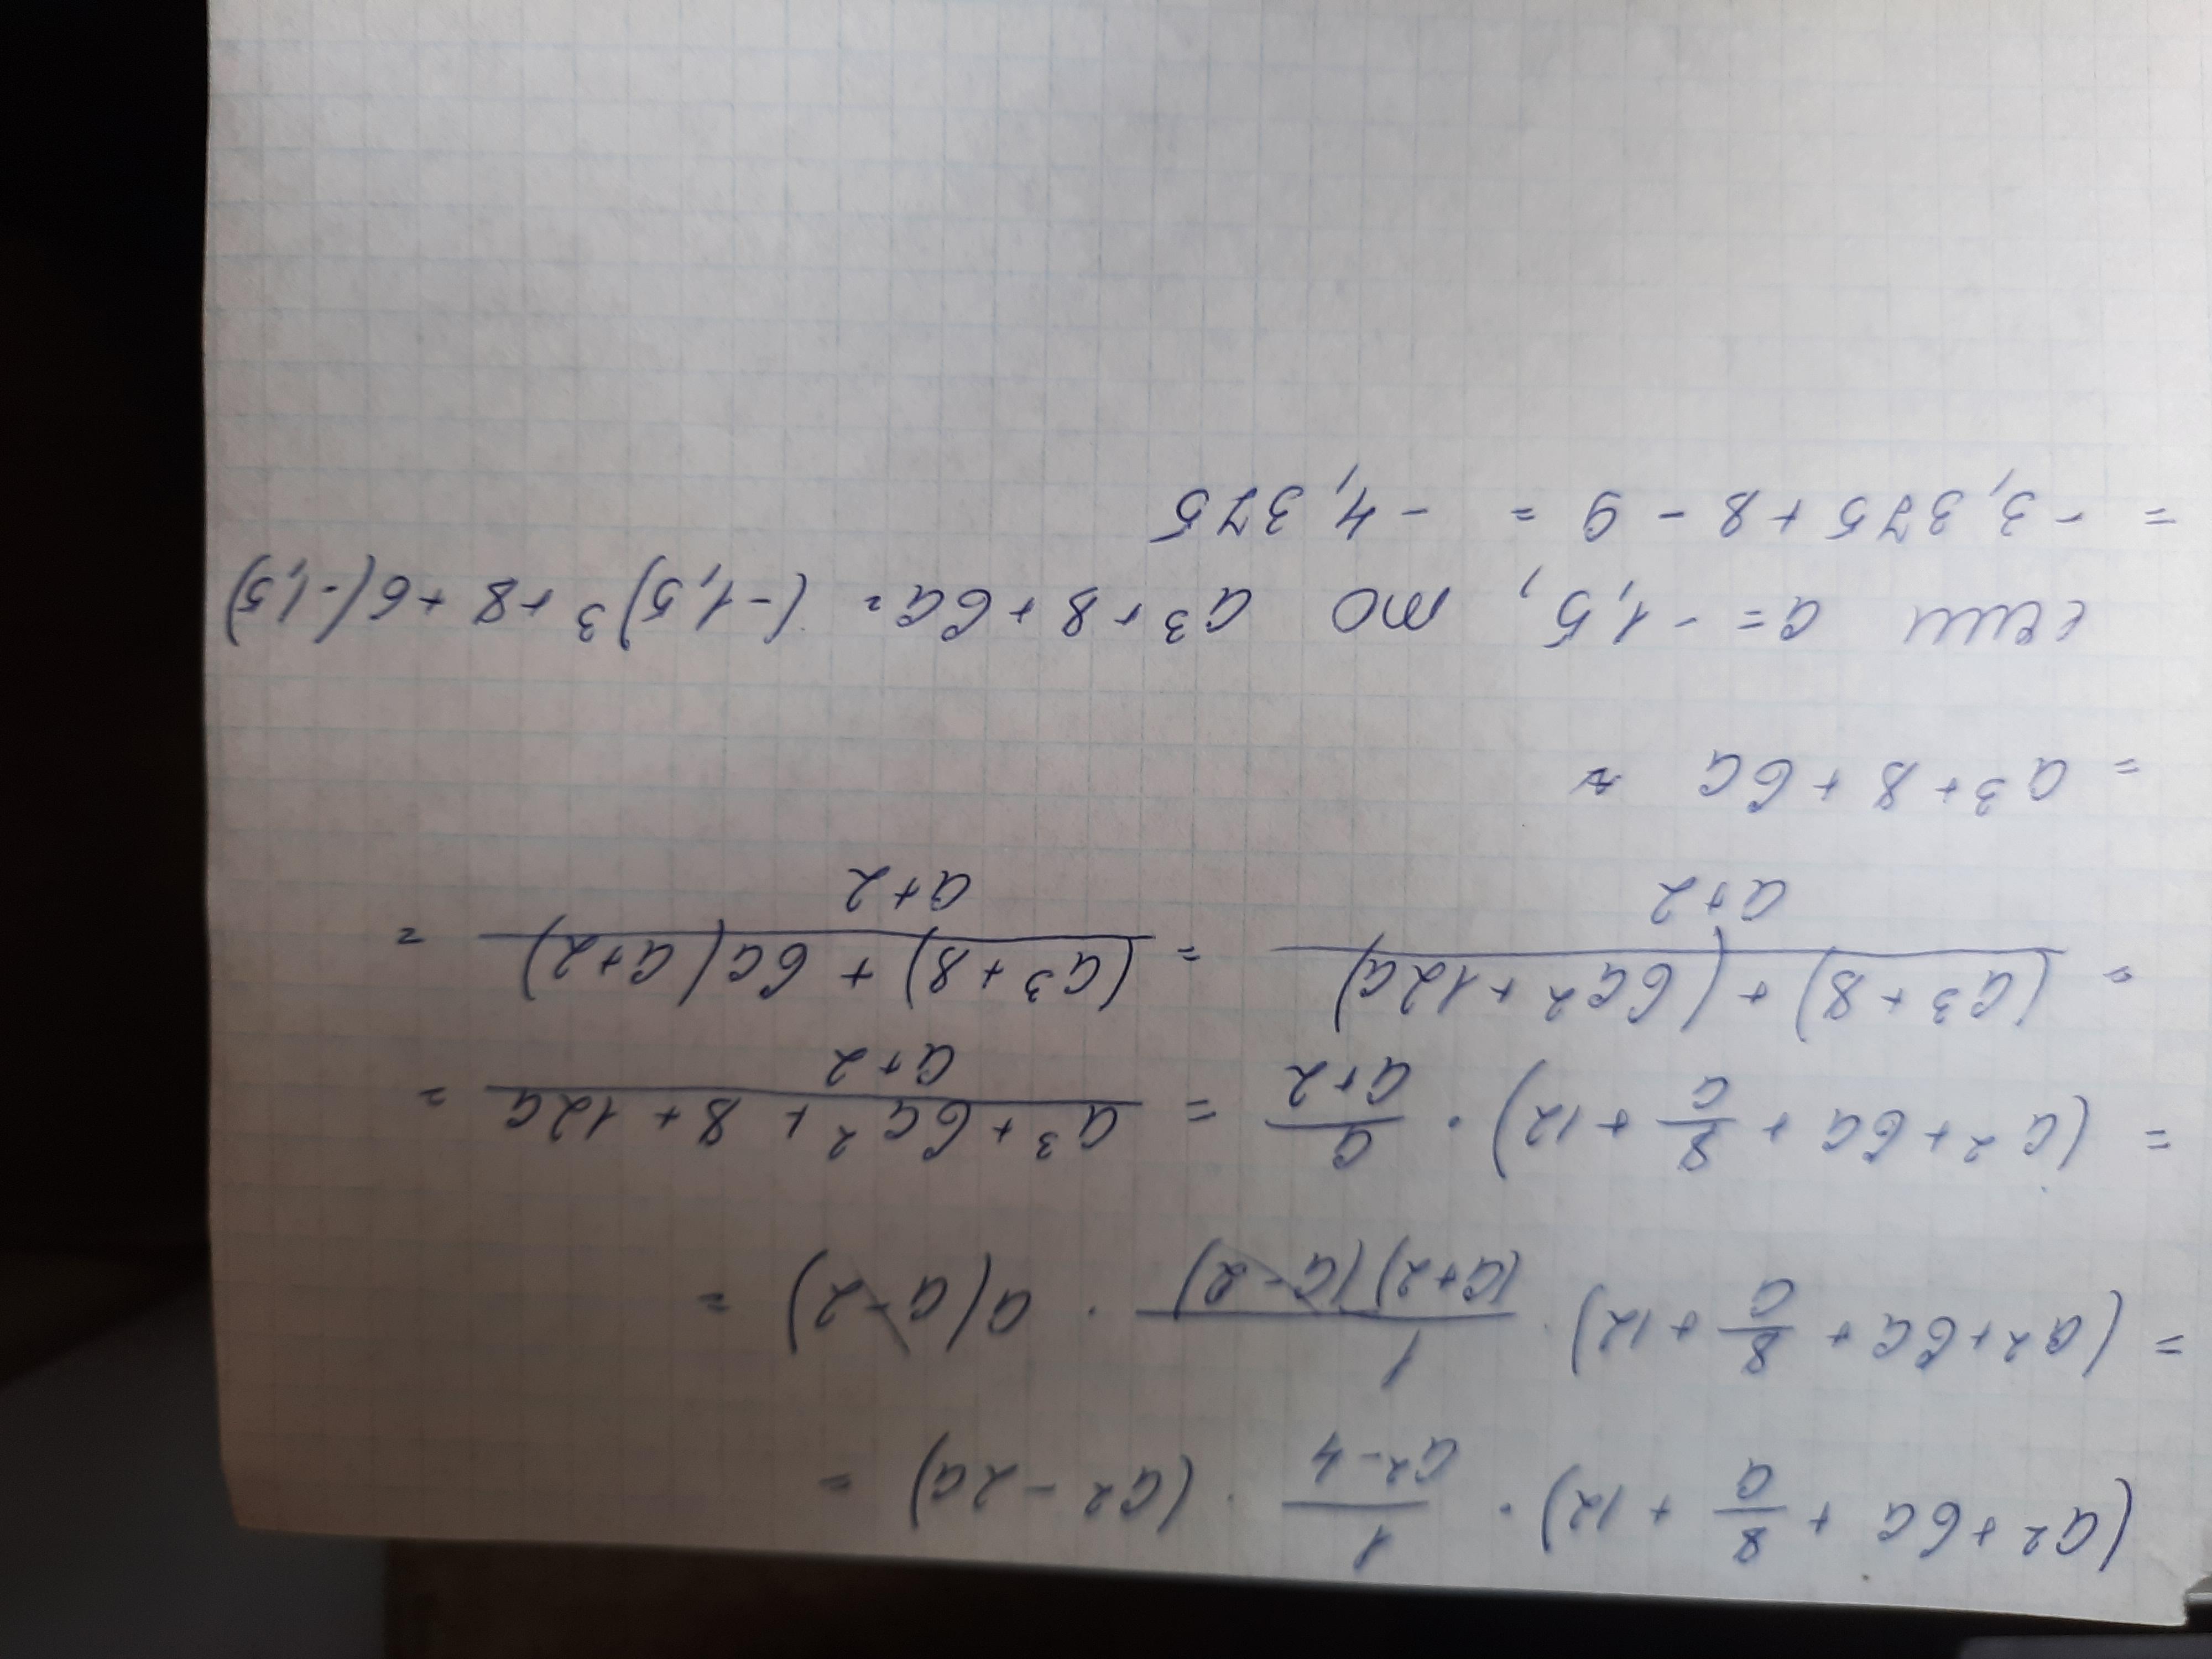 (a² + 6a + 8/a + 12) · 1/(a² - 4) · (a² - 2a) =
= (a² + 6a + 8/a + 12) · 1/((a+2)(a-2)) · a(a-2) =
= (a² + 6a + 8/a + 12) · a/(a+2) = (a³ + 6a² + 8 + 12a)/(a+2) =
= ((a³ + 8) + (6a² + 12a))/(a+2) = ((a³ + 8) + 6a(a+2))/(a+2) =
= a³ + 8 + 6a
если a = -1,5, то a³ + 8 + 6a = (-1,5)³ + 8 + 6(-1,5)
= -3,375 + 8 - 9 = -4,375